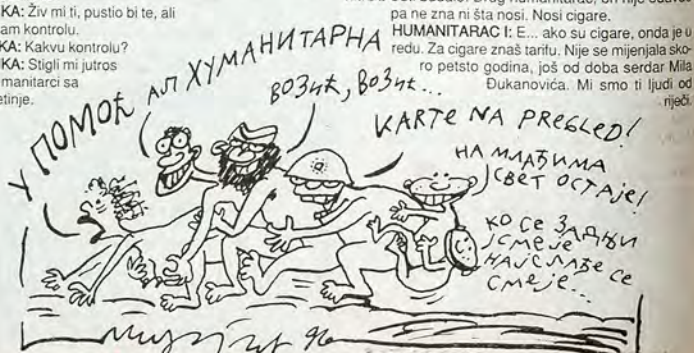 KA: Živ mi ti, pustio bi te, ali
am kontrolu.
KA: Kakvu kontrolu?
KA: Stigli mi jutros
manitarci sa
etinje.
Drug humanitarac, on nije
pa ne zna ni šta nosi. Nosi cigare.
HUMANITARAC I: E... ako su cigare, onda je u
redu. Za cigare znaš tarifu. Nije se mijenjala sko-
ro petsto godina, još od doba serdar Mila
Đukanovića. Mi smo ti ljudi od
riječi.
У ПОМОЋ
АЛ ХУМАНИТАРНА
ВОЗИЋ, ВОЗИЋ...
KARTE NA PREGLED!
НА МЛАЂИМА
СВЕТ ОСТАЈЕ!
КО СЕ ЗАДЊИ
СМЕЈЕ
НАЈСЛАЂЕ СЕ
СМЕЈЕ...
96